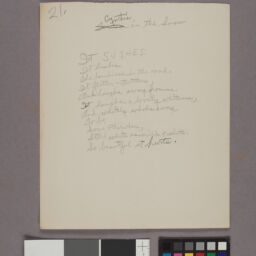 21.
Cynthia in the Snow
It SUSHES
It hushes
The loudness in the road.
It flitter-twitters,
And laughs away from me.
It laughs a lovely whiteness,
And whitely whirs away,
To be
Some otherwhere,
Still white as milk or shirts.
So beautiful it hurts.